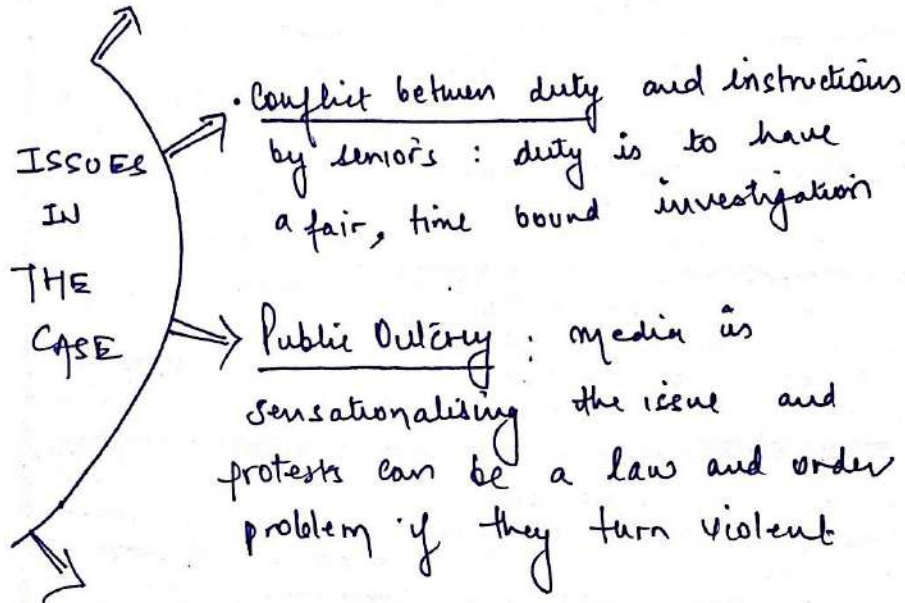 ISSUES
IN
THE
CASE
· Conflict between duty and instructions
by seniors : duty is to have
a fair, time bound investigation
Public Outcry : media is
sensationalising the issue and
protests can be a law and order
problem if they turn violent